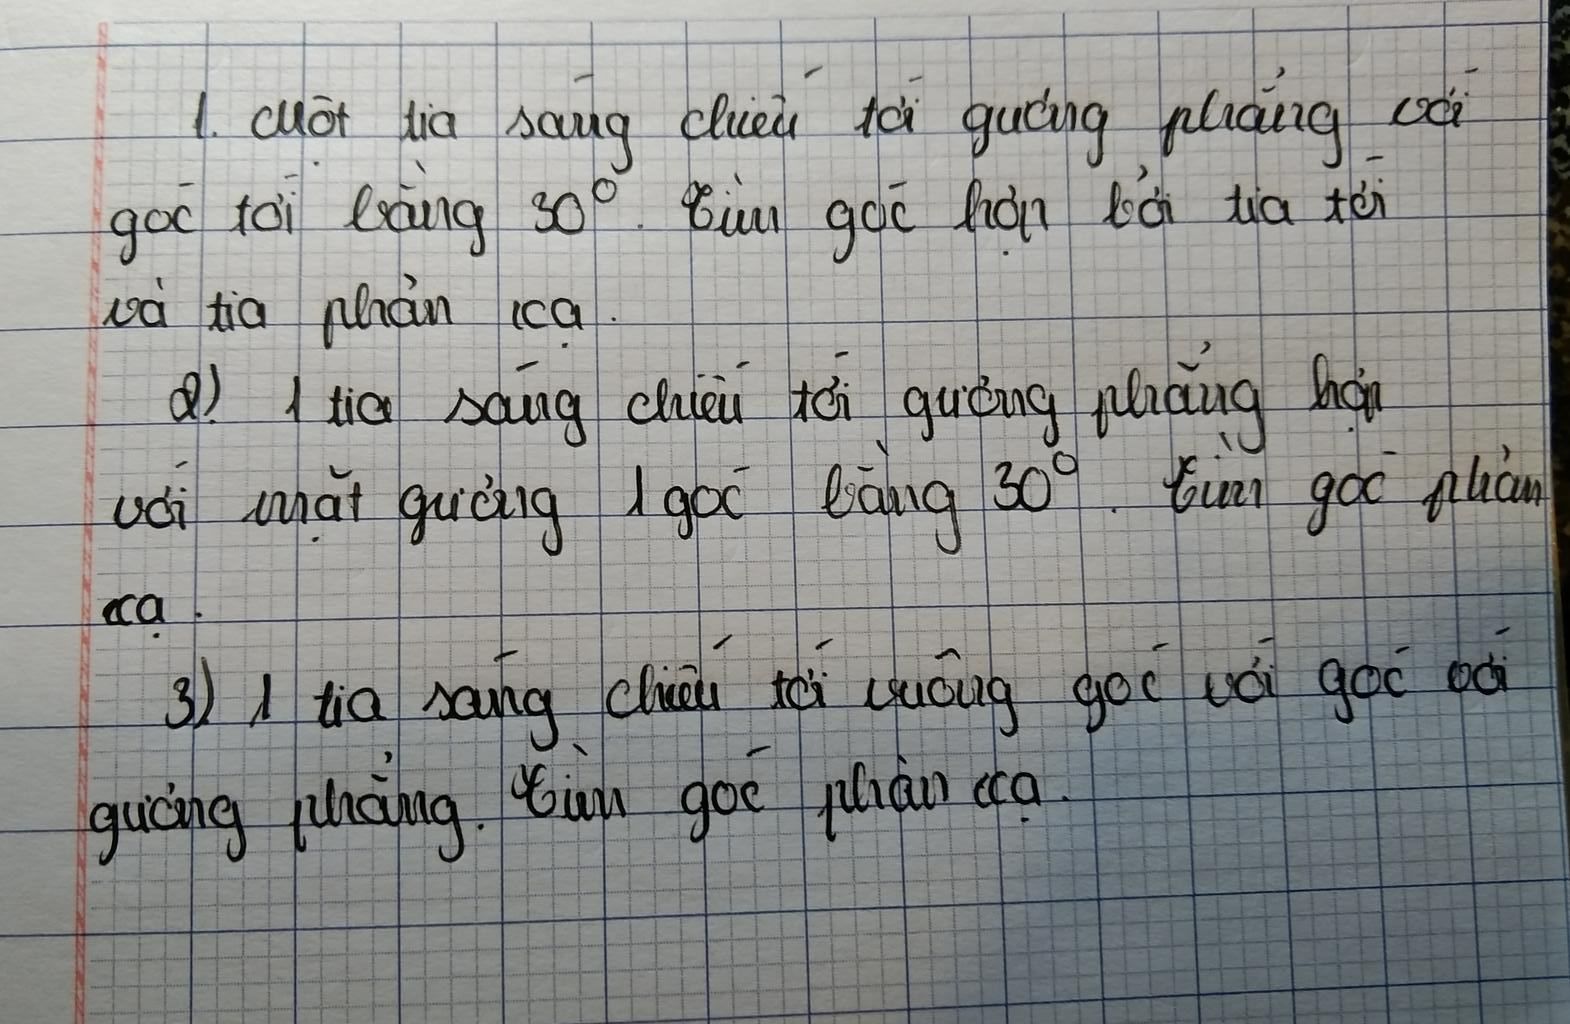 1. Một tia sáng chiếu tới gương phẳng với
góc tới bằng 30°. Tìm góc hợp bởi tia tới
và tia phản xạ.
2) 1 tia sáng chiếu tới gương phẳng hợp
với mặt gương 1 góc bằng 30°. Tìm góc phản
xạ.
3) 1 tia sáng chiếu tới vuông góc với góc với
gương phẳng. Tìm góc phản xạ.